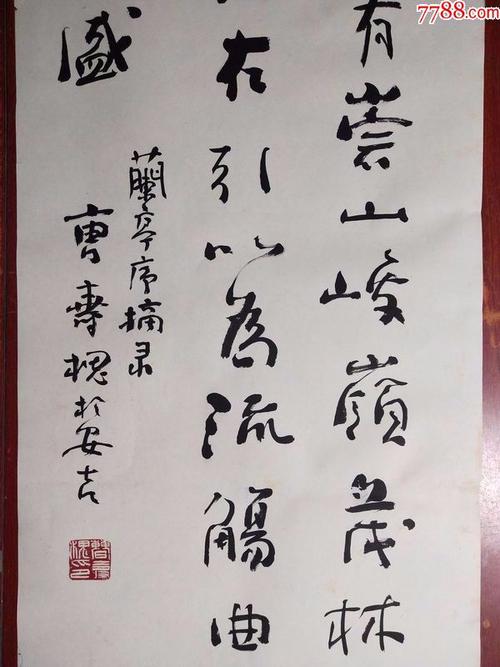 7788.com
有崇山峻嶺茂林
右引以為流觴曲
盛
蘭亭序摘录
曹寿槐於安吉
曹壽槐印